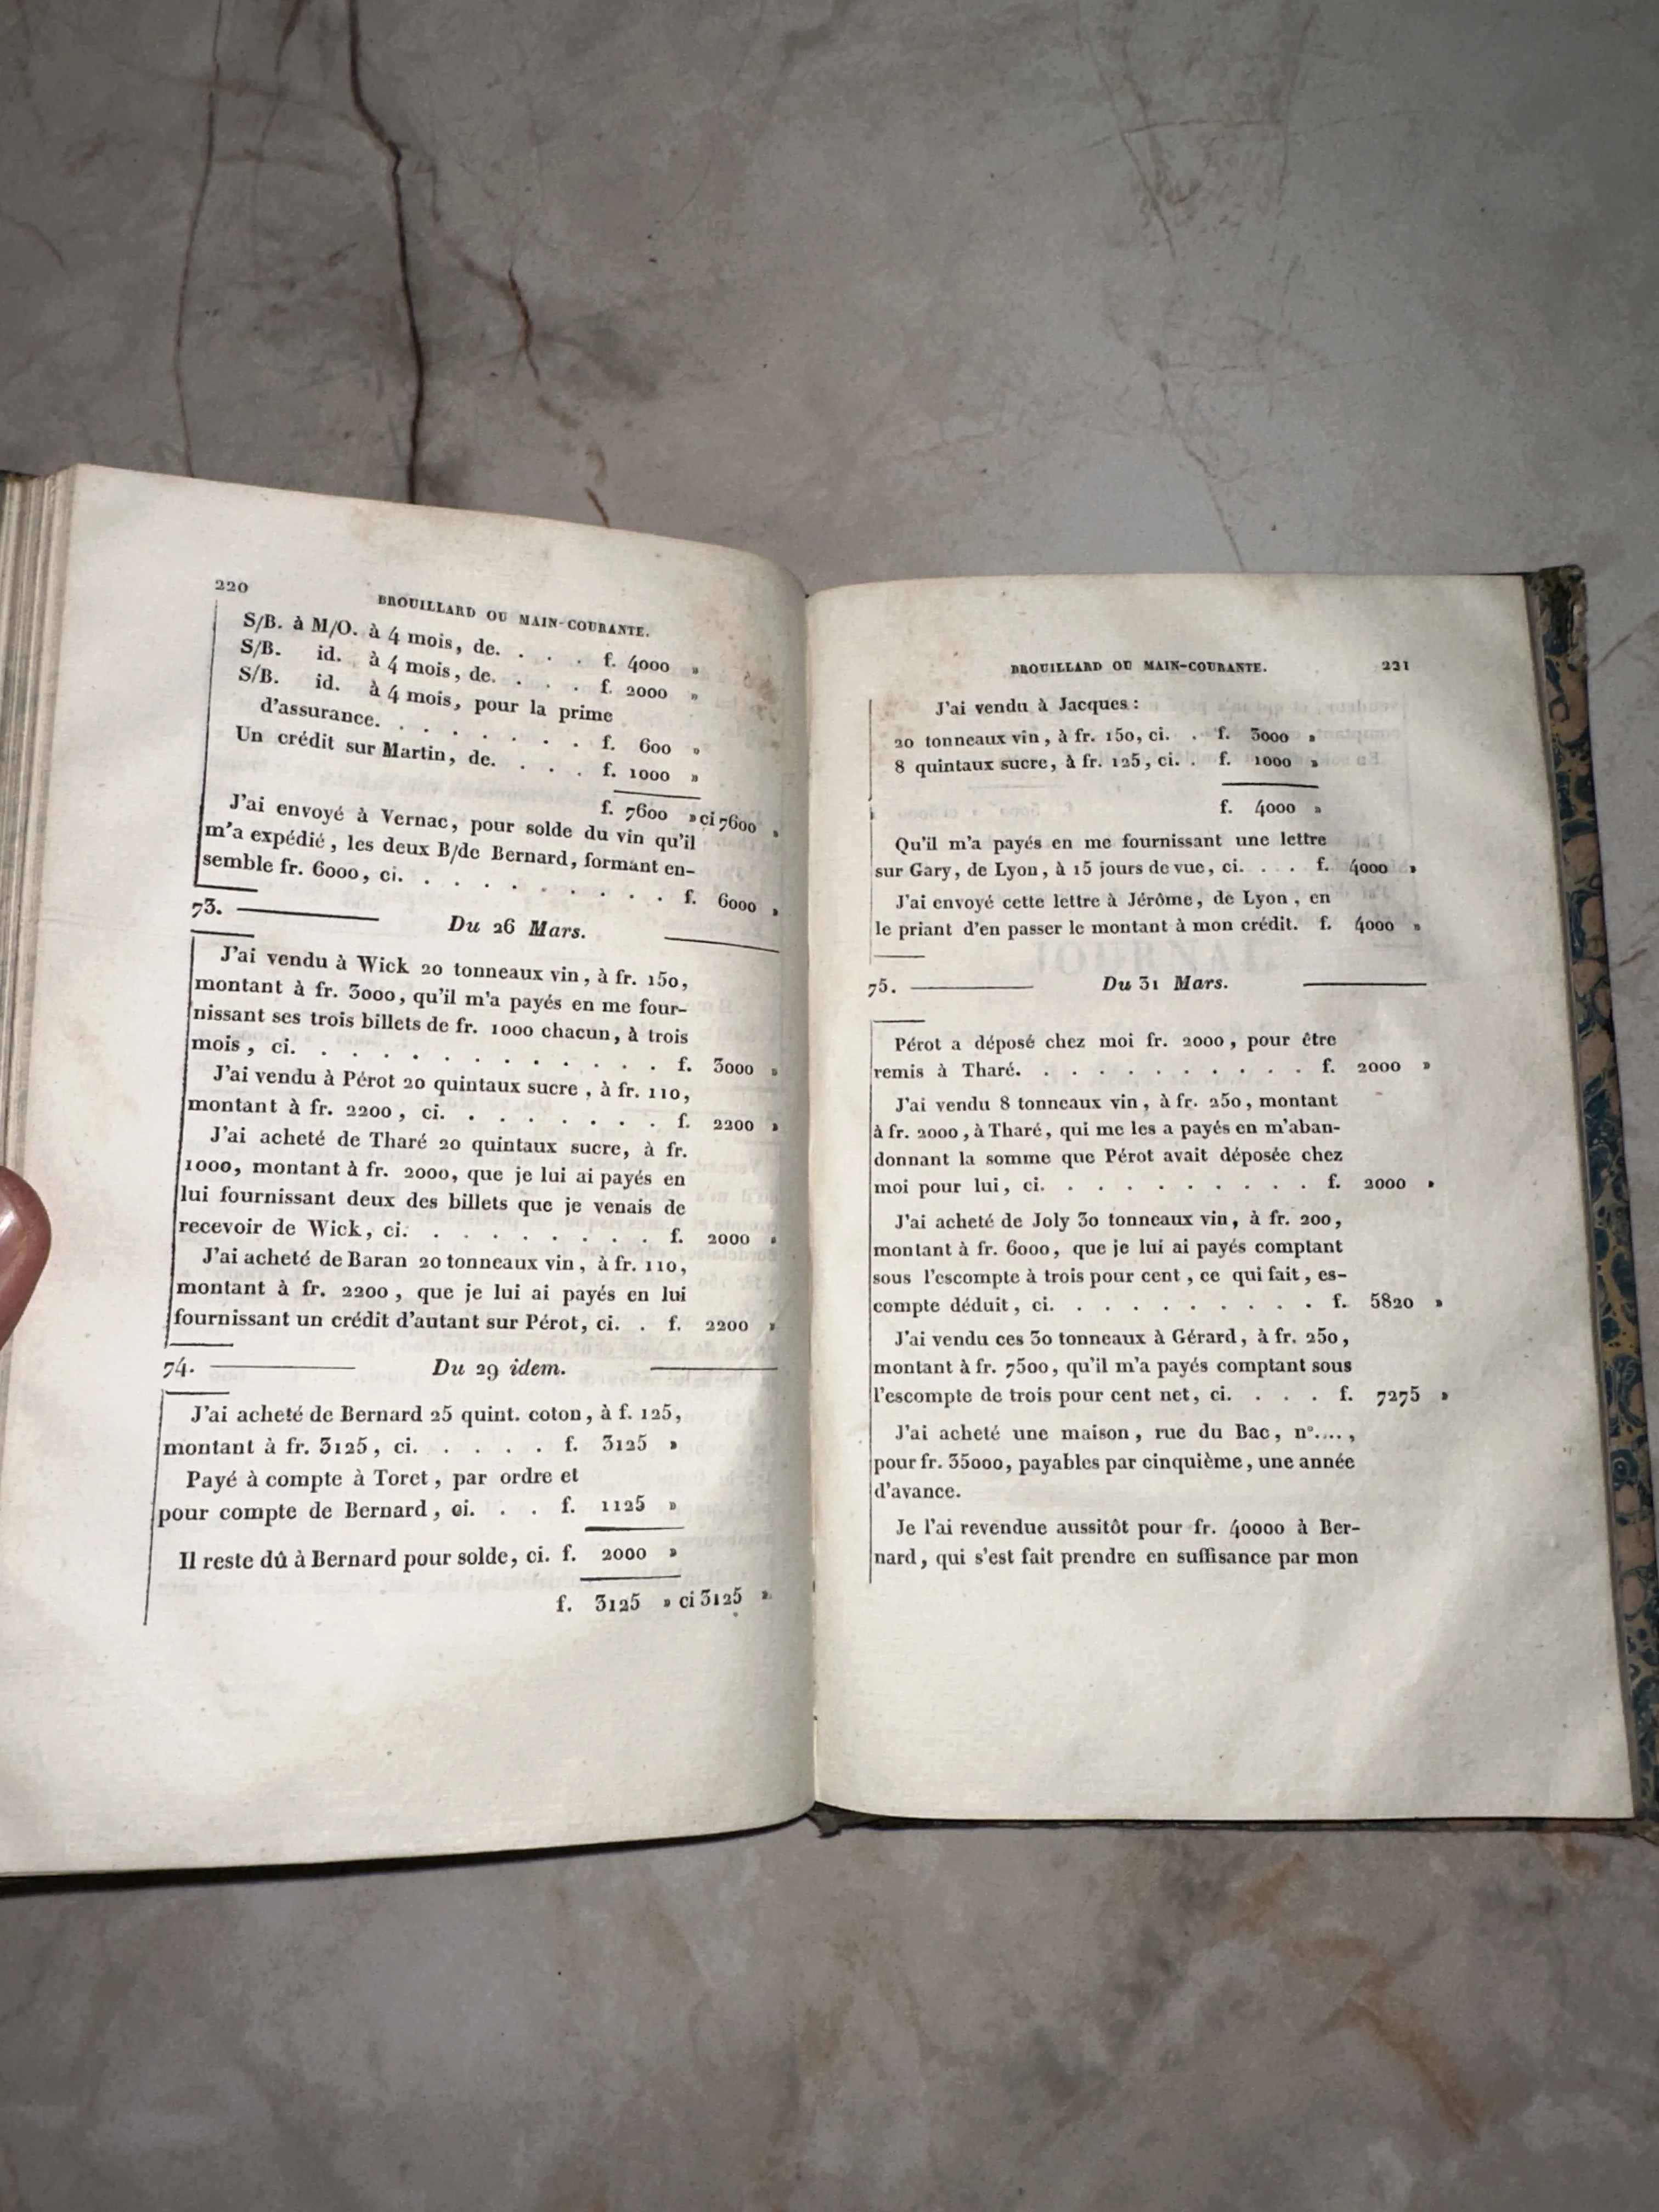 220
BROUILLARD OU MAIN-COURANTE.
S/B. à M/O. à 4 mois, de. . . . f. 4000 »
S/B. id. à 4 mois, de. . . . f. 2000 »
S/B. id. à 4 mois, pour la prime
d'assurance. . . . . . . . f. 600 »
Un crédit sur Martin, de. . . . f. 1000 »
f. 7600 » ci 7600 »
J'ai envoyé à Vernac, pour solde du vin qu'il
m'a expédié, les deux B/de Bernard, formant en-
semble fr. 6000, ci. . . . . . . . . . f. 6000 »
73. Du 26 Mars.
J'ai vendu à Wick 20 tonneaux vin, à fr. 150,
montant à fr. 3000, qu'il m'a payés en me four-
nissant ses trois billets de fr. 1000 chacun, à trois
mois, ci. . . . . . . . . . . . f. 3000 »
J'ai vendu à Pérot 20 quintaux sucre, à fr. 110,
montant à fr. 2200, ci. . . . . . . . f. 2200 »
J'ai acheté de Tharé 20 quintaux sucre, à fr.
1000, montant à fr. 2000, que je lui ai payés en
lui fournissant deux des billets que je venais de
recevoir de Wick, ci. . . . . . . . . f. 2000 »
J'ai acheté de Baran 20 tonneaux vin, à fr. 110,
montant à fr. 2200, que je lui ai payés en lui
fournissant un crédit d'autant sur Pérot, ci. . f. 2200 »
74. Du 29 idem.
J'ai acheté de Bernard 25 quint. coton, à f. 125,
montant à fr. 3125, ci. . . . . . f. 3125 »
Payé à compte à Toret, par ordre et
pour compte de Bernard, ci. . . f. 1125 »
Il reste dû à Bernard pour solde, ci. f. 2000 »
f. 3125 » ci 3125 »
BROUILLARD OU MAIN-COURANTE. 221
J'ai vendu à Jacques :
20 tonneaux vin, à fr. 150, ci. . f. 3000 »
8 quintaux sucre, à fr. 125, ci. . f. 1000 »
f. 4000 »
Qu'il m'a payés en me fournissant une lettre
sur Gary, de Lyon, à 15 jours de vue, ci. . . . f. 4000 »
J'ai envoyé cette lettre à Jérôme, de Lyon, en
le priant d'en passer le montant à mon crédit. f. 4000 »
75. Du 31 Mars.
Pérot a déposé chez moi fr. 2000, pour être
remis à Tharé. . . . . . . . . . . f. 2000 »
J'ai vendu 8 tonneaux vin, à fr. 250, montant
à fr. 2000, à Tharé, qui me les a payés en m'aban-
donnant la somme que Pérot avait déposée chez
moi pour lui, ci. . . . . . . . . . f. 2000 »
J'ai acheté de Joly 30 tonneaux vin, à fr. 200,
montant à fr. 6000, que je lui ai payés comptant
sous l'escompte à trois pour cent, ce qui fait, es-
compte déduit, ci. . . . . . . . . . f. 5820 »
J'ai vendu ces 30 tonneaux à Gérard, à fr. 250,
montant à fr. 7500, qu'il m'a payés comptant sous
l'escompte de trois pour cent net, ci. . . . f. 7275 »
J'ai acheté une maison, rue du Bac, n°....,
pour fr. 35000, payables par cinquième, une année
d'avance.
Je l'ai revendue aussitôt pour fr. 40000 à Ber-
nard, qui s'est fait prendre en suffisance par mon